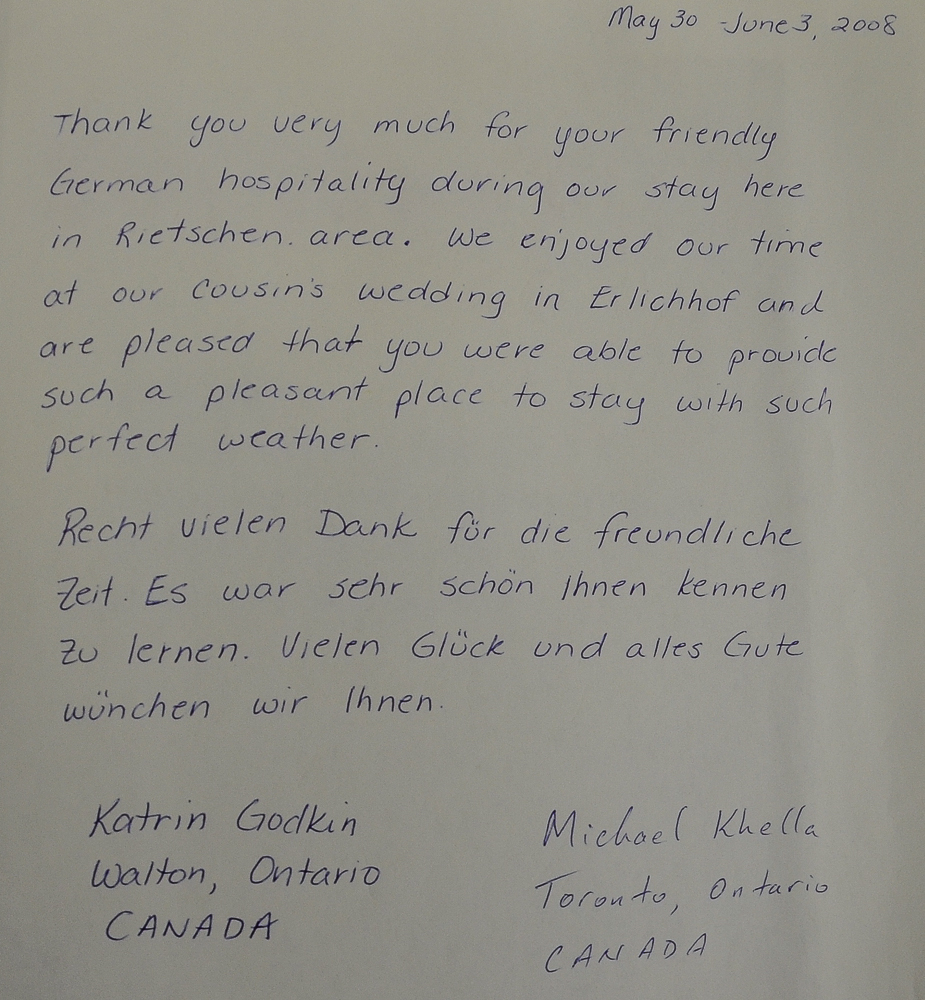 May 30 - June 3, 2008
Thank you very much for your friendly
German hospitality during our stay here
in Rietschen. area. We enjoyed our time
at our cousin's wedding in Erlichhof and
are pleased that you were able to provide
such a pleasant place to stay with such
perfect weather.
Recht vielen Dank für die freundliche
Zeit. Es war sehr schön Ihnen kennen
zu lernen. Vielen Glück und alles Gute
wünchen wir Ihnen.
Katrin Godkin
Walton, Ontario
CANADA
Michael Khella
Toronto, Ontario
CANADA